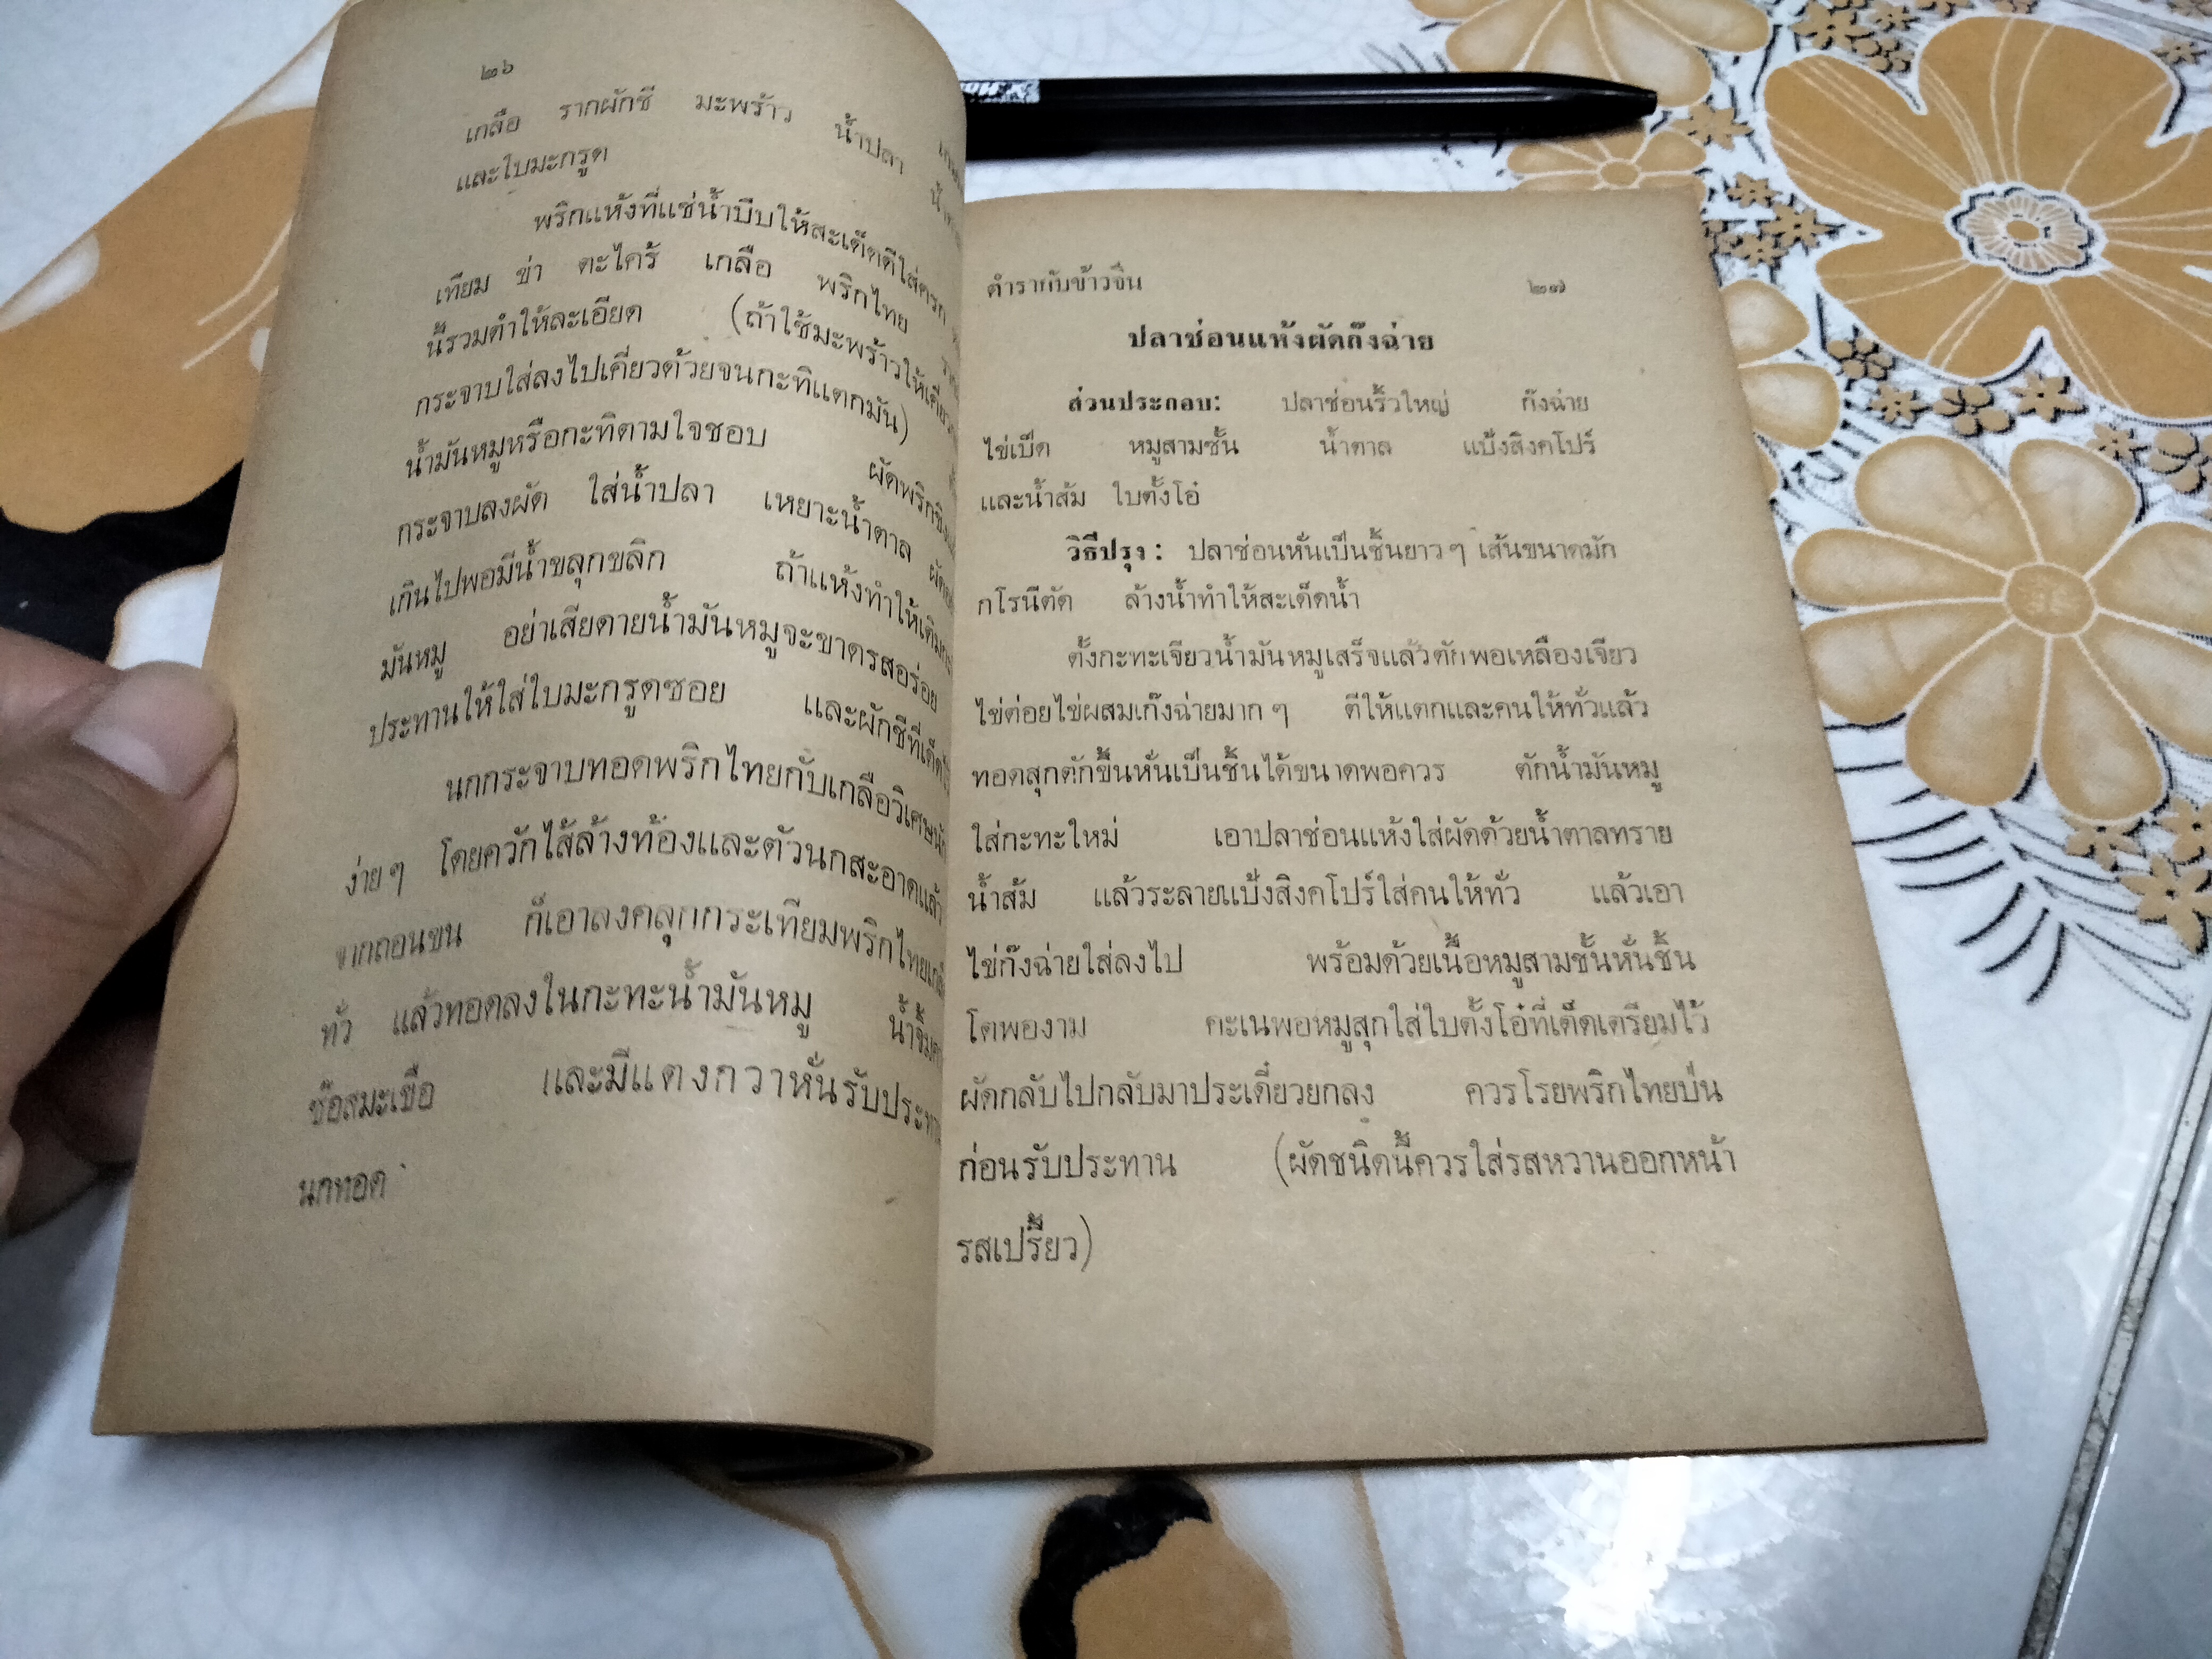 ๒๖
เกลือ รากผักชี มะพร้าว น้ำปลา
และใบมะกรูด
พริกแห้งที่แช่น้ำบีบให้สะเด็ดดีใส่ครก
เทียม ข่า ตะไคร้ เกลือ พริกไทย
นี้รวมตำให้ละเอียด (ถ้าใช้มะพร้าวให้เคี่ยว
กระจาบใส่ลงไปเคี่ยวด้วยจนกะทิแตกมัน)
น้ำมันหมูหรือกะทิตามใจชอบ ผัดพริกขิง
กระจาบลงผัด ใส่น้ำปลา เหยาะน้ำตาล
เกินไปพอมีน้ำขลุกขลิก ถ้าแห้งทำให้เติม
มันหมู อย่าเสียดายน้ำมันหมูจะขาดรสอร่อย
ประทานให้ใส่ใบมะกรูดซอย และผักชีที่เด็ด
นกกระจาบทอดพริกไทยกับเกลือวิเศษนัก
ง่าย ๆ โดยควักไส้ล้างท้องและตัวนกสะอาดแล้ว
จากถอนขน ก็เอาลงคลุกกระเทียมพริกไทย
ทั่ว แล้วทอดลงในกะทะน้ำมันหมู น้ำจิ้ม
ซ๊อสมะเขือ และมีแตงกวาหั่นรับประทาน
นกทอด
ตำรากับข้าวจีน ๒๗
ปลาช่อนแห้งผัดก๊งฉ่าย
ส่วนประกอบ: ปลาช่อนริ้วใหญ่ ก๊งฉ่าย
ไข่เป็ด หมูสามชั้น น้ำตาล แป้งสิงคโปร์
และน้ำส้ม ใบตั้งโอ๋
วิธีปรุง : ปลาช่อนหั่นเป็นชิ้นยาว ๆ เส้นขนาดมัก
กโรนีตัด ล้างน้ำทำให้สะเด็ดน้ำ
ตั้งกะทะเจียวน้ำมันหมูเสร็จแล้วตักพอเหลืองเจียว
ไข่ต่อยไข่ผสมเก๊งฉ่ายมาก ๆ ตีให้แตกและคนให้ทั่วแล้ว
ทอดสุกตักขึ้นหั่นเป็นชิ้นได้ขนาดพอควร ตักน้ำมันหมู
ใส่กะทะใหม่ เอาปลาช่อนแห้งใส่ผัดด้วยน้ำตาลทราย
น้ำส้ม แล้วระลายแป้งสิงคโปร์ใส่คนให้ทั่ว แล้วเอา
ไข่ก๊งฉ่ายใส่ลงไป พร้อมด้วยเนื้อหมูสามชั้นหั่นชิ้น
โตพองาม คะเนพอหมูสุกใส่ใบตั้งโอ๋ที่เด็ดเตรียมไว้
ผัดกลับไปกลับมาประเดี๋ยวยกลง ควรโรยพริกไทยป่น
ก่อนรับประทาน (ผัดชนิดนี้ควรใส่รสหวานออกหน้า
รสเปรี้ยว)